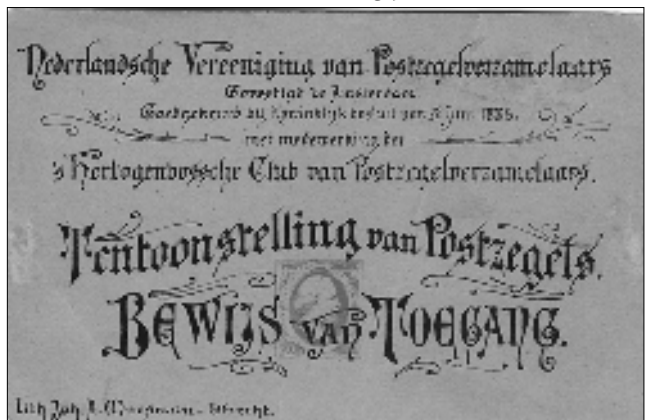 Nederlandsche Vereeniging van Postzegelverzamelaars
Gevestigd te Amsterdam
Goedgekeurd bij Koninklijk besluit van Juni
met medewerking der
's Hertogenbossche Club van Postzegelverzamelaars.
Tentoonstelling van Postzegels.
BEWIJS VAN TOEGANG.
Lith. Joh. A. - Utrecht.